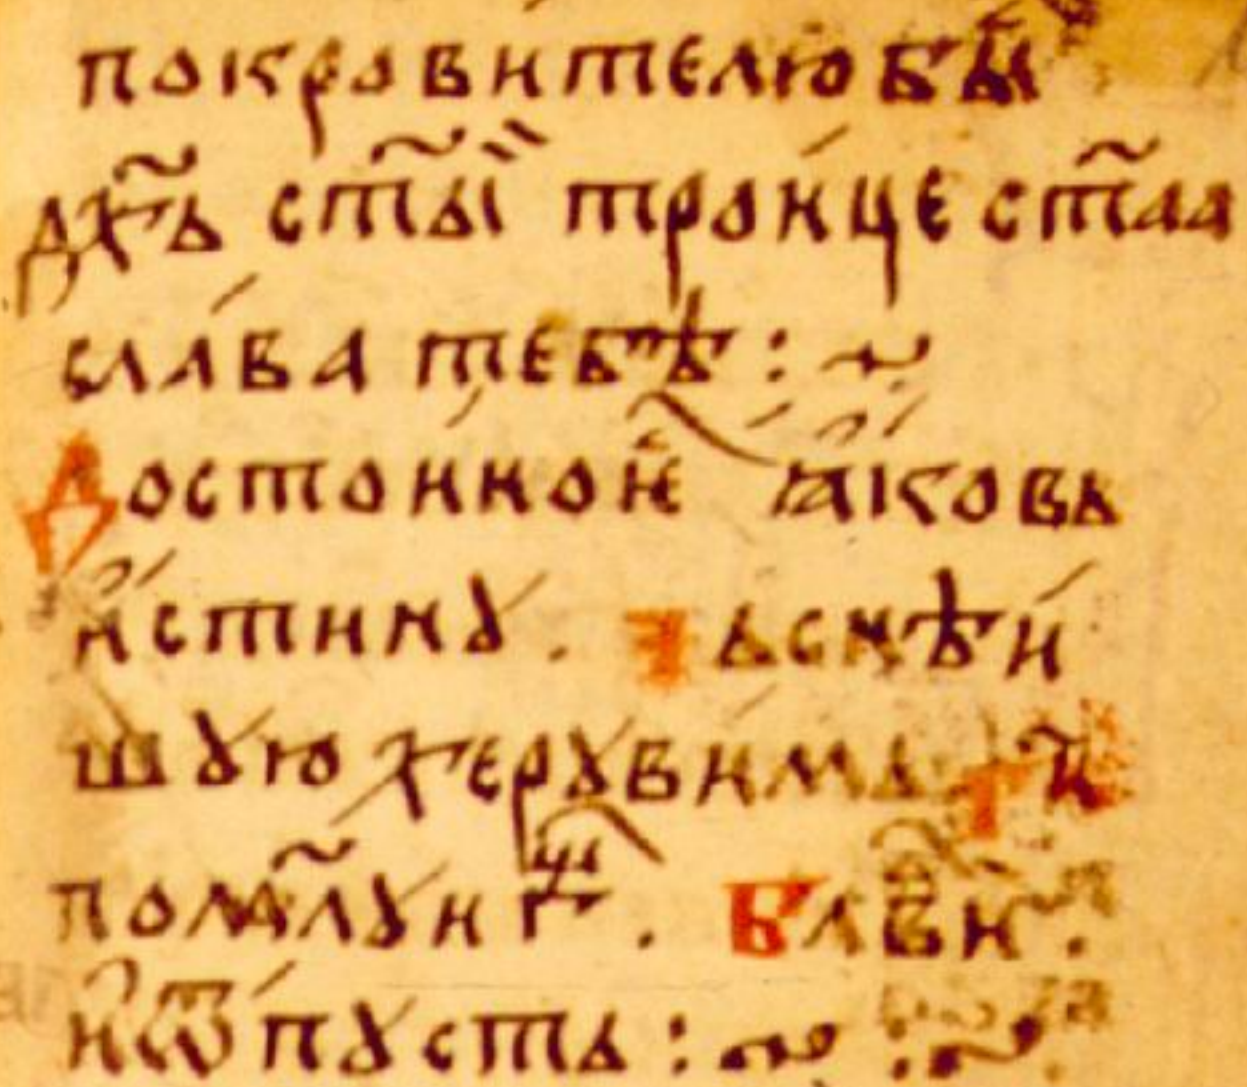 покровителю бы
дх҃ъ ст҃ыї тро́ице ст҃аа
сла́ва тебѣ :~
Достоиної ꙗ́кова
и҆́стинꙋ . Ч ьснѣи́
шꙋю херꙋви́мъ г҃
помл҃ꙋи г҃ . Бл҃ви .
и҆ ѿпꙋстъ :~ :~